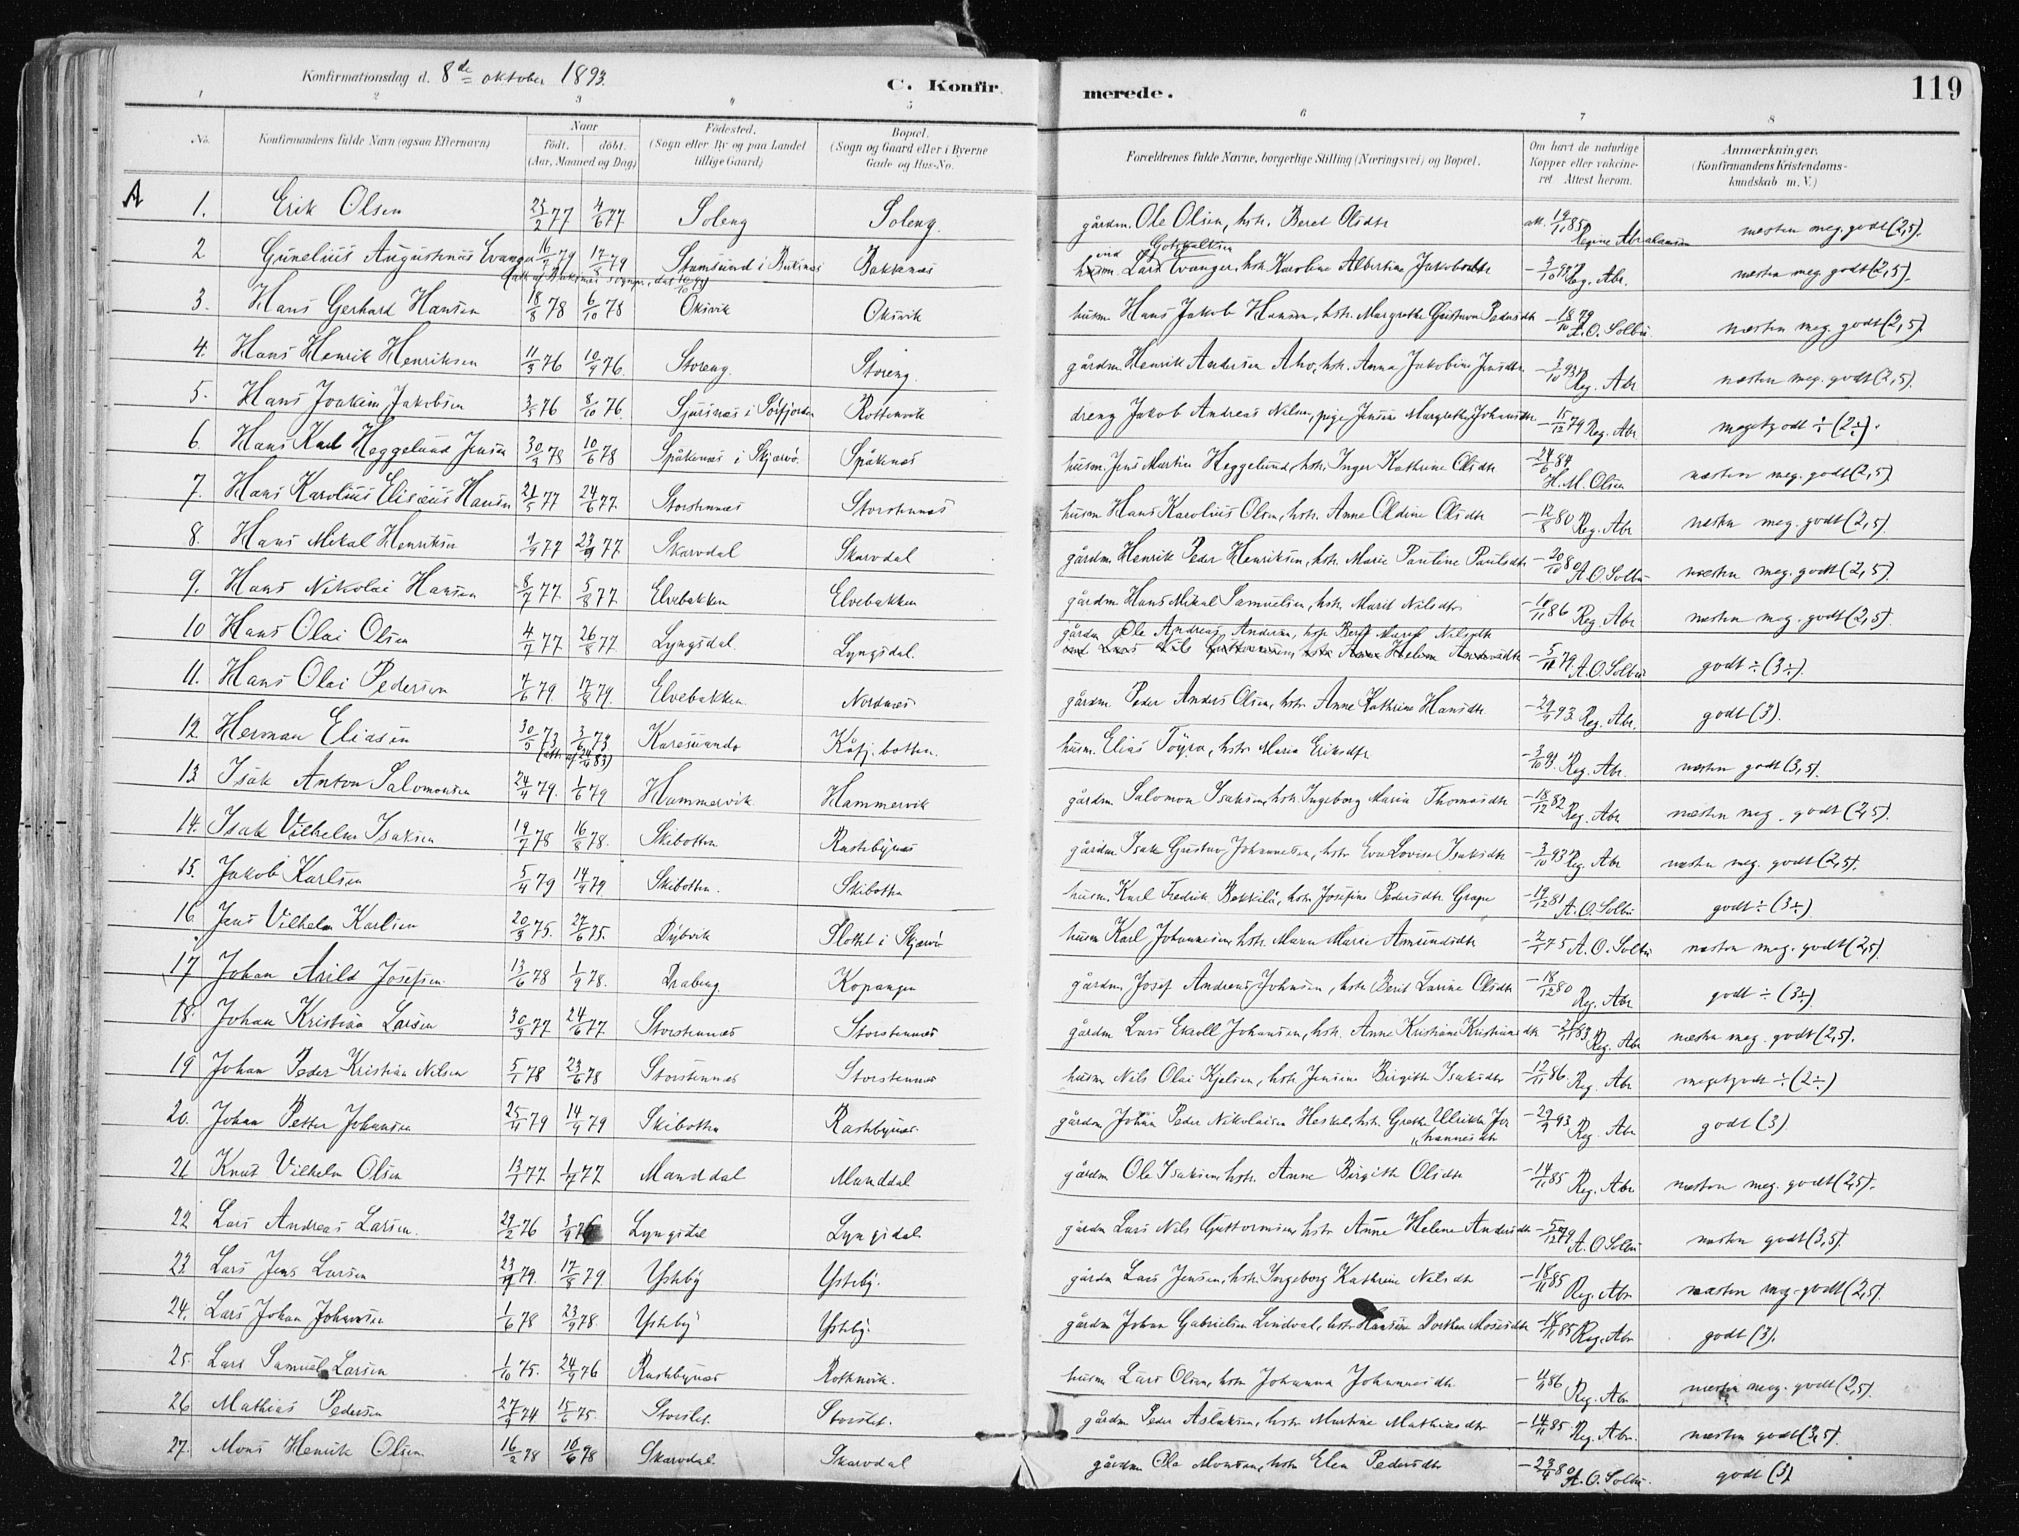 Konfirmationsdag d. 8de oktober 1893.
C. Konfirmerede. 119
1 2 3 4 5 6 7 8
No. Konfirmandens fulde Navn (ogsaa Efternavn) Naar født. døbt. (Aar, Maaned og Dag) Fødested. (Sogn eller By og paa Landet tillige Gaard) Bopæl. (Sogn og Gaard eller i Byerne Gade og Hus-No. Forældrenes fulde Navne, borgerlige Stilling (Næringsvei) og Bopæl. Om havt de naturlige Kopper eller vakcineret Attest herom. Anmærkninger. (Konfirmandens Kristendomskundskab m. V.)
A 1. Erik Olsen 25/2 77 4/6 77 Soleng Soleng. gårdm. Ole Olsen, hstr. Beret Olsdtr att. 19/11 85 Regine Abrahamsen næsten meg. godt (2,5).
2 Gunelius Augustinus Evanger 16/7 79 17/8 79 Stamsund i Buksnæs Bakkenæs ind Lars Gotskalksen Evanger, hstr. Karoline Albertine Jakobsdtr – 3/10 93 Reg. Abr. næsten meg. godt (2,5).
3. Hans Gerhard Hansen 18/8 78 6/10 78 Oksvik Oksvik husm. Hans Jakob Hansen, hstr. Margrethe Gustava Pedersdtr – 18/10 79 A. O. Solbu næsten meg. godt (2,5).
4. Hans Henrik Henriksen 11/3 76 10/9 76 Storeng. Storeng. gårdm. Henrik Andersen Aho, hstr. Anna Jakobine Jensdtr – 3/10 93 Reg. Abr næsten meg. godt (2,5).
5. Hans Joakim Jakobsen 3/5 76 8/10 76. Sjursnæs i Sørfjorden Rottenvik dreng Jakob Andreas Nilsen, pige Jensine Margrethe Johansdtr – 15/12 79 Reg. Abr meget godt ÷ (2÷).
6. Hans Karl Heggelund Jensen 30/3 78 10/6 78 Spåkenæs i Skjærvø. Spåkenæs husm. Jens Martin Heggelund, hstr. Inger Kathrine Olsdtr – 24/6 84 H. M. Olsen næsten meg. godt (2,5)
7. Hans Karolius Elisæus Hansen 21/5 77 24/6 77. Storstennæs Storstennæs husm Hans Karolius Olsen, hstr. Anne Oldine Olsdtr – 12/8 80 Reg. Abr næsten meg. godt (2,5).
8. Hans Mikal Henriksen 9/9 77 23/9 77 Skarvdal Skarvdal gårdm Henrik Peder Henriksen, hstr. Marie Pauline Paulsdtr – 20/10 80 A. O. Solbu næsten meg. godt (2,5).
9. Hans Nikolai Hansen 8/7 77. 5/8 77 Elvebakken Elvebakken gårdm Hans Mikal Samuelsen, hstr. Marit Nilsdtr – 18/11 86 Reg. Abr næsten meg. godt (2,5).
10 Hans Olai Olsen 4/7 77 26/8 77. Lyngsdal. Lyngsdal. gårdm Ole Andreas Andersen, hstr Berit Marit Nilsdtr – 5/11 79. A. O. Solbu godt ÷ (3÷).
11. Hans Olai Pedersen 7/6 79 17/8 79. Elvebakken Nordnæs gårdm. Peder Anders Olsen, hstr Anne Kathrine Hansdtr – 29/9 93. Reg. Abr. godt (3).
12. Herman Eliasen 30/5 73 3/6 73 Karesuando Kåfj. botten. husm. Elias Töyrä, hstr Maria Eriksdtr – 3/10 93. Reg. Abr. næsten godt (3,5).
13. Isak Anton Salomonsen 24/4 79. 1/6 79 Hammervik Hammervik gårdm. Salomon Isaksen, hstr. Ingeborg Maria Thomasdtr – 18/12 82 Reg. Abr næsten meg. godt (2,5).
14. Isak Vilhelm Isaksen 19/7 78 16/8 78. Skibotten Rastebynæs gårdm Isak Gustav Johannesen, hstr Eva Lovise Isaksdtr – 3/10 93 Reg. Abr næsten meg. godt (2,5).
15. Jakob Karlsen 5/4 79 14/9 79 Skibotten. Skibotten husm. Karl Fredrik Bekkilä, hstr Josefine Pedersdtr Grape – 19/12 81 A. O. Solbu godt ÷ (3÷)
16. Jens Vilhelm Karlsen 20/3 75. 27/6 75. Dybvik Slottet i Skjærvø husm Karl Johannesen, hstr. Maren Marie Amundsdtr – 2/7 75 A. O. Solbu næsten meg. godt (2,5).
17 Johan Arild Josefsen 13/6 78 1/9 78. Draberg Kopangen gårdm. Josef Andreas Johnsen, hstr Berit Larine Olsdtr – 18/12 80 Reg. Abr godt ÷ (3÷)
18. Johan Kristian Larsen 30/3 77 24/6 77. Storstennæs Storstennæs gårdm Lars Ekroll Johansen, hstr. Anne Kristiane Kristiansdtr 83 Reg. Abr næsten meg. godt (2,5).
19 Johan Peder Kristian Nilsen 5/1 78 23/6 78 Storstennæs Storstennæs husm Nils Olai Kjelsen, hstr. Jensine Birgitte Isaksdtr – 12/11 86. Reg. Abr meget godt ÷ (2÷)
20. Johan Petter Johansen 25/4 79 14/9 79 Skibotten Rastebynæs. gårdm Johan Peder Nikolaisen Heskel, hstr. Grethe Ulrikka Johannesdtr – 29/9 93 Reg. Abr godt (3)
21. Knut Vilhelm Olsen 13/1 77 1/7 77 Manddal Manddal gårdm Ole Isaksen, hstr. Anne Birgitte Olsdtr – 14/11 85 Reg. Abr næsten meg. godt (2,5).
22 Lars Andreas Larsen. 29/2 76 3/9 76 Lyngsdal Lyngsdal gårdm Lars Nils Guttormsen, hstr Anne Helene Andersdtr – 5/12 79 A. O. Solbu næsten godt (3,5).
23. Lars Jens Larsen 23/4 79. 17/8 79 Ysteby Ysteby. gårdm Lars Jensen, hstr. Ingeborg Kathrine Nilsdtr – 18/11 85 Reg. Abr næsten meg. godt (2,5).
24. Lars Johan Johansen 1/6 78 23/9 78 Ysteby Ysteby. gårdm Johan Gabrielsen Lindval, hstr Hansine Dorthea Mosesdtr – 18/11 85 Reg. Abr godt (3).
25. Lars Samuel Larsen 1/10 75. 24/9 76 Rastebynæs Rottenvik. husm Lars Olsen, hstr Johanna Johannesdtr 86 Reg. Abr næsten meg. godt (2,5).
26 Mathias Pedersen 27/9 74 15/6 75. Storslet. Storslet. gårdm Peder Aslaksen, hstr Martine Mathiasdtr – 14/11 85 Reg. Abr. næsten godt (3,5).
27. Mons Henrik Olsen 16/2 78 10/6 78 Skarvdal Skarvdal gårdm Ole Monsen, hstr Elen Pedersdtr – 23/4 80 A. O. Solbu. godt (3)